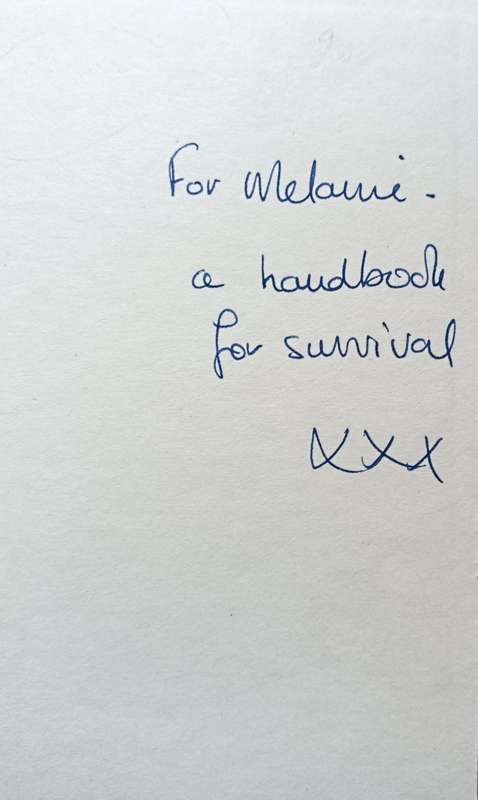 For Melanie -
a handbook
for survival
xxx